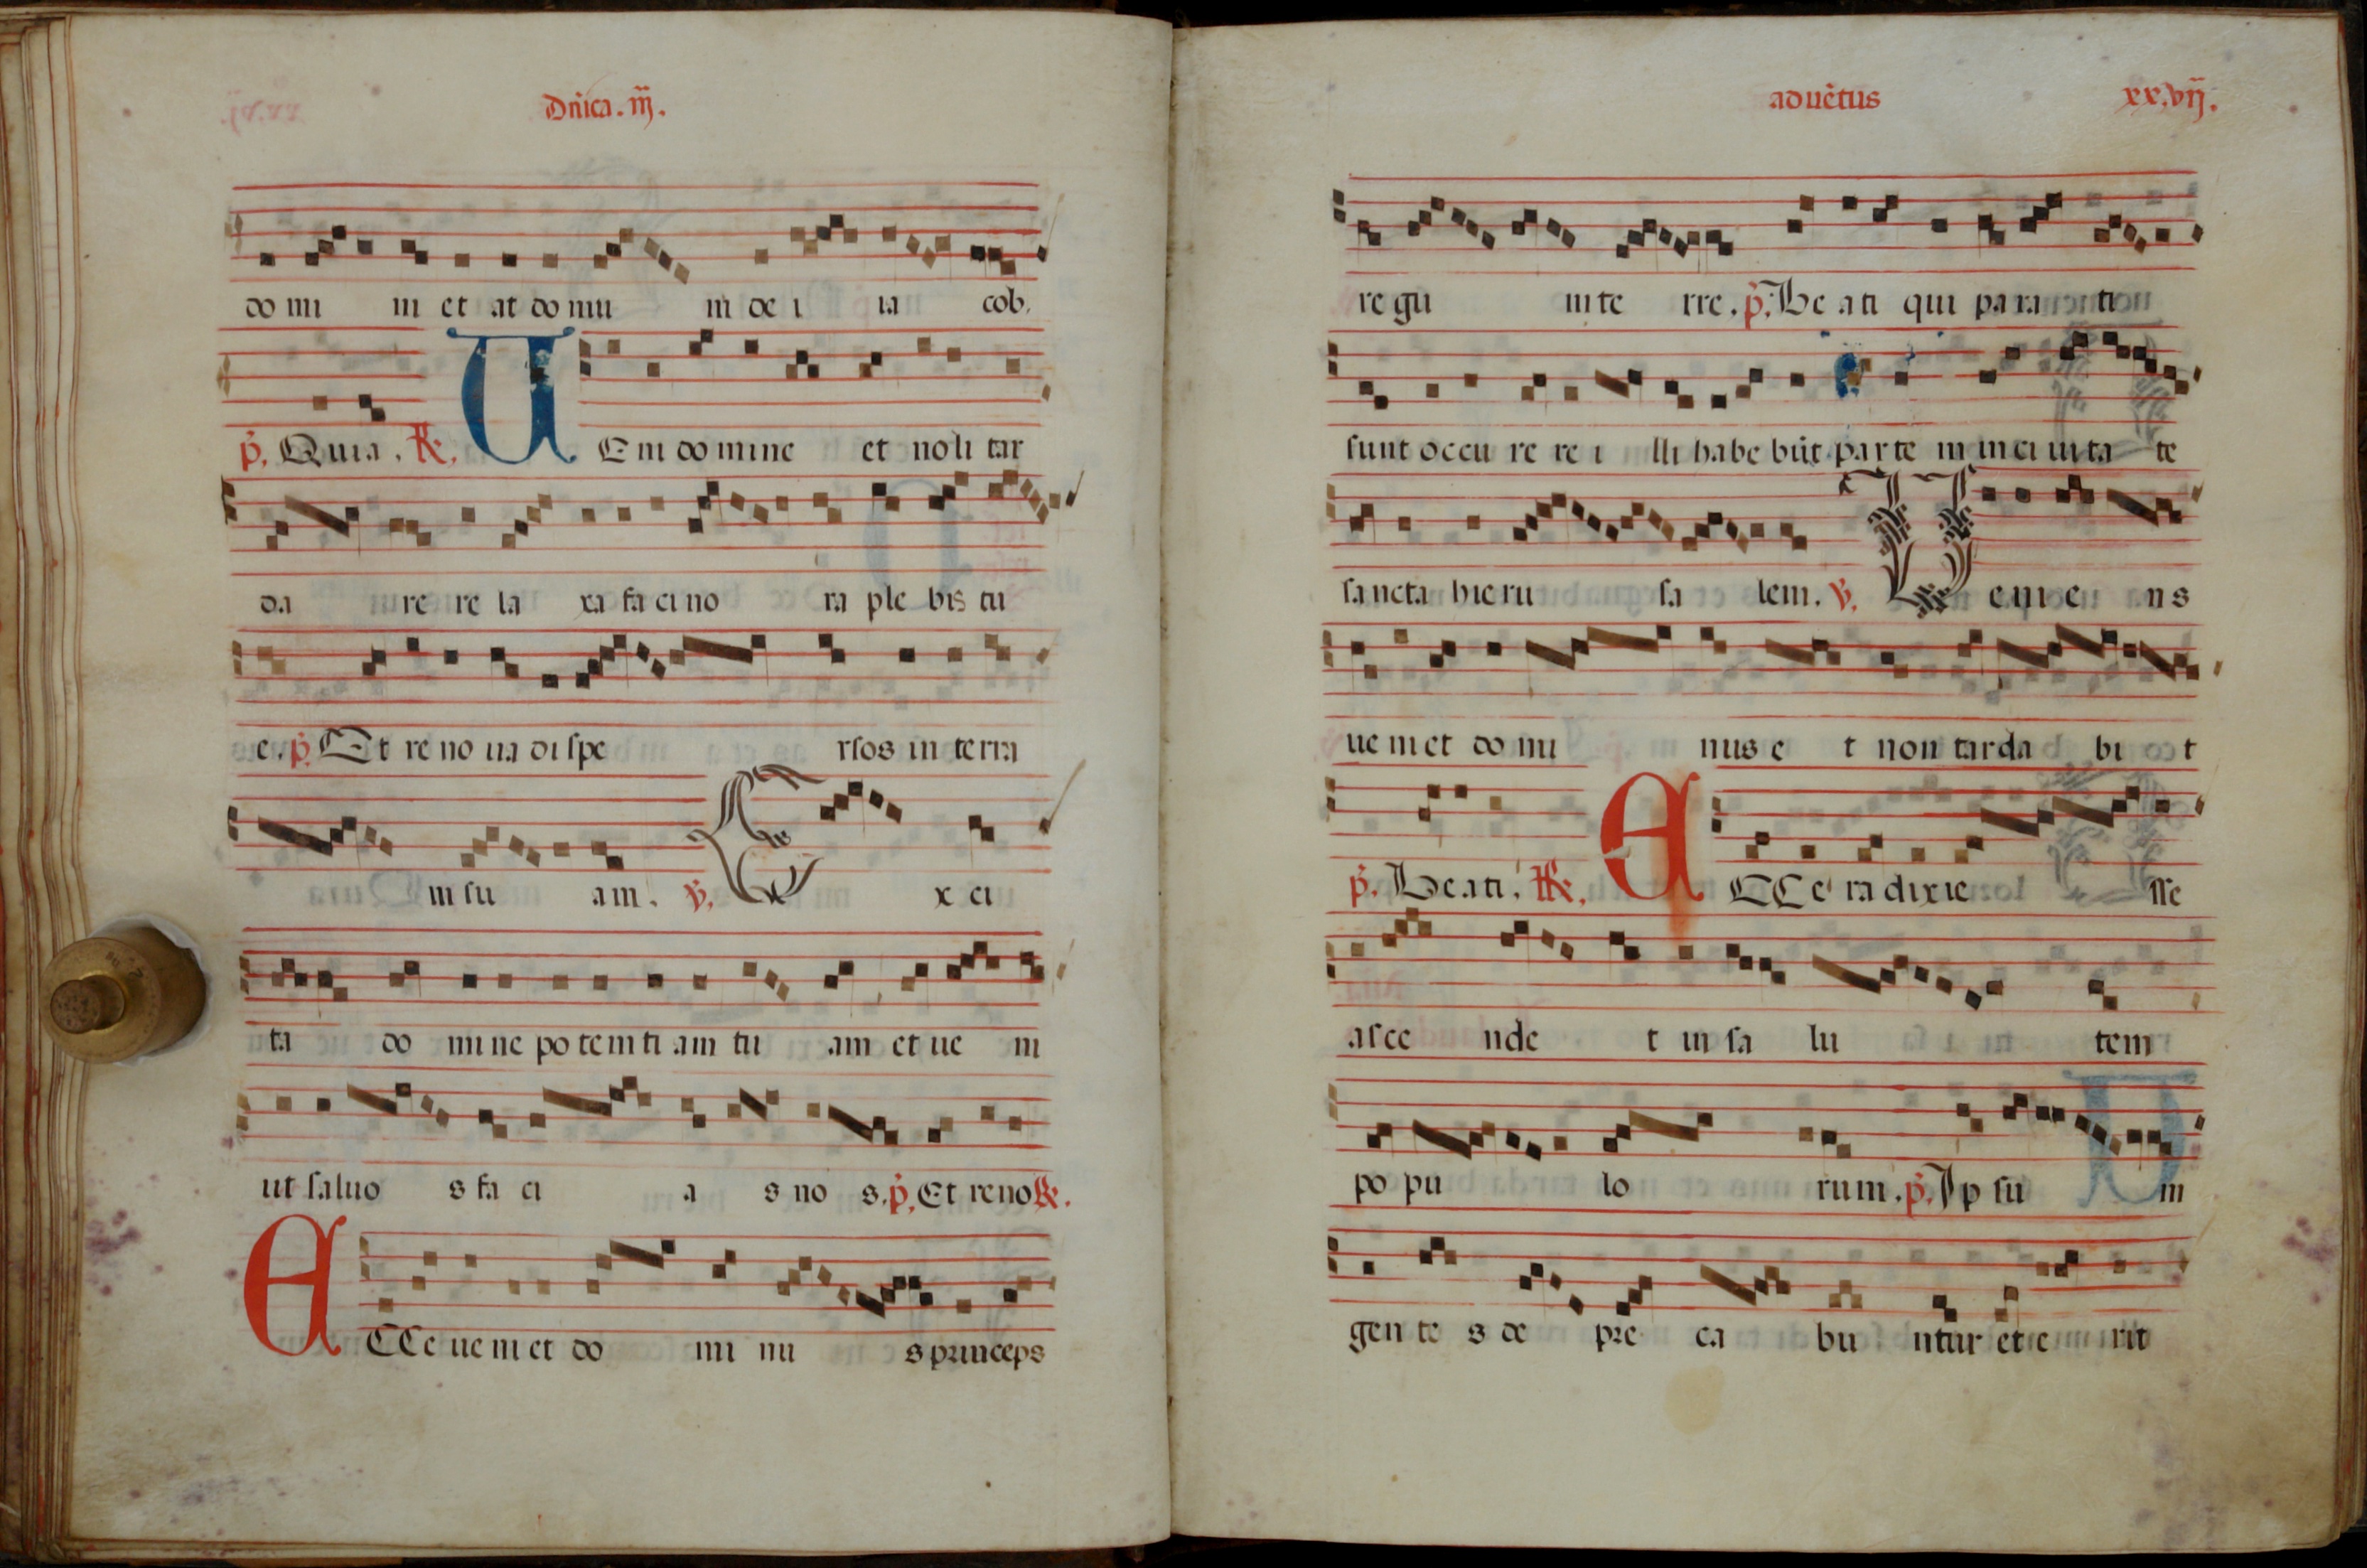 Dñica. iij.
do mi ni et at do mu m de i ia cob.
p. Quia. R. U E ni do mine et noli tar
da re re la xa fa ci no ra ple bis tu
e. p. Et re no ua di spe rsos in terra
m su am. v. E x ci
ta do mi ne po tem ti am tu am et ue ni
ut saluo s fa ci a s no s. p. Et reno R.
E CCe ue ni et do mi nu s princeps
aduẽtus xx.vij.
re gu m te rre. p. Be ati qui pa ra ti
sunt occu re re i lli habe bũt parte m in ci uita te
sancta hieru sa lem. v. U eni e ns
ue ni et do mi nus e t non tarda bi t
p. Beati. R. E CCe ra dix ie sse
asce nde t in sa lu tem
po pu lo rum. p. Ip su m
gen te s de pre ca bu ntur et e rit